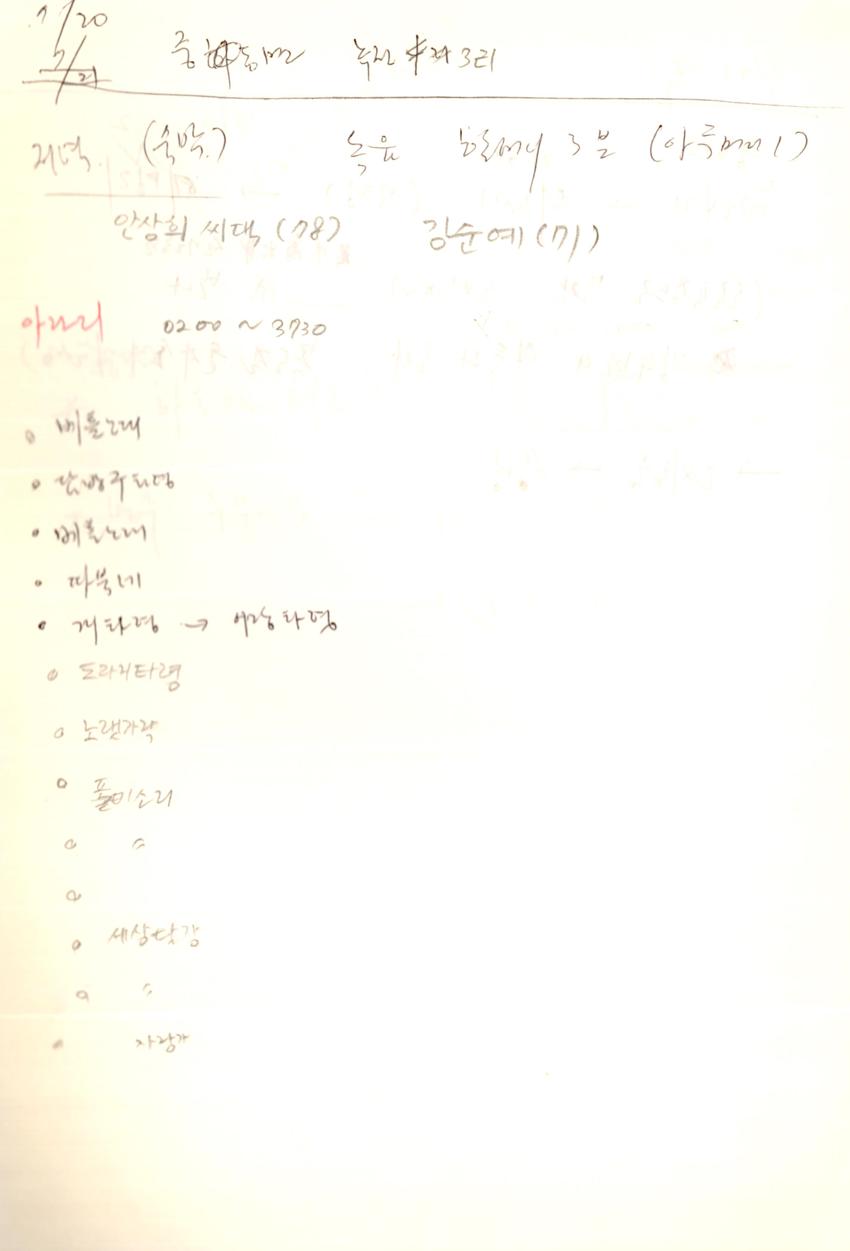 7/20
7/21 중동면 녹산 3리
저녁 (숙박) 녹음 3분 (아주머니)
안상희 씨댁 (78) 김순예 (71)
아라리 0200 ~ 3730
◦ 베틀노래
• 담방구타령
• 베틀노래
• 따북네
• 개타령 → 어랑타령
◦ 도라지타령
◦ 노랫가락
◦ 풀미소리
◦ 〃
◦
◦ 세상달강
◦ 〃
• 자장가